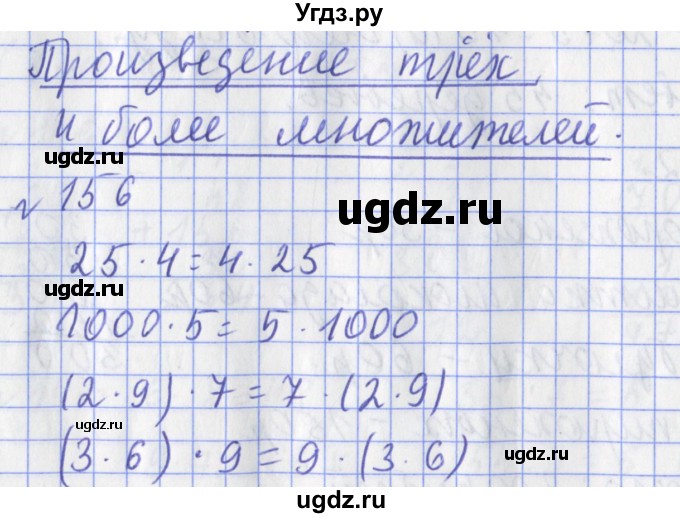 Угдз.ру
Произведение трёх
и боле множителей.
ugdz.ru
ugdz.ru
√ 156
25 · 4 = 4 · 25
ugdz.ru
1000 · 5 = 5 · 1000
(2 · 9) · 7 = 7 · (2 · 9)
ugdz.ru
(3 · 6) · 9 = 9 · (3 · 6)
ugdz.ru
ugdz.ru